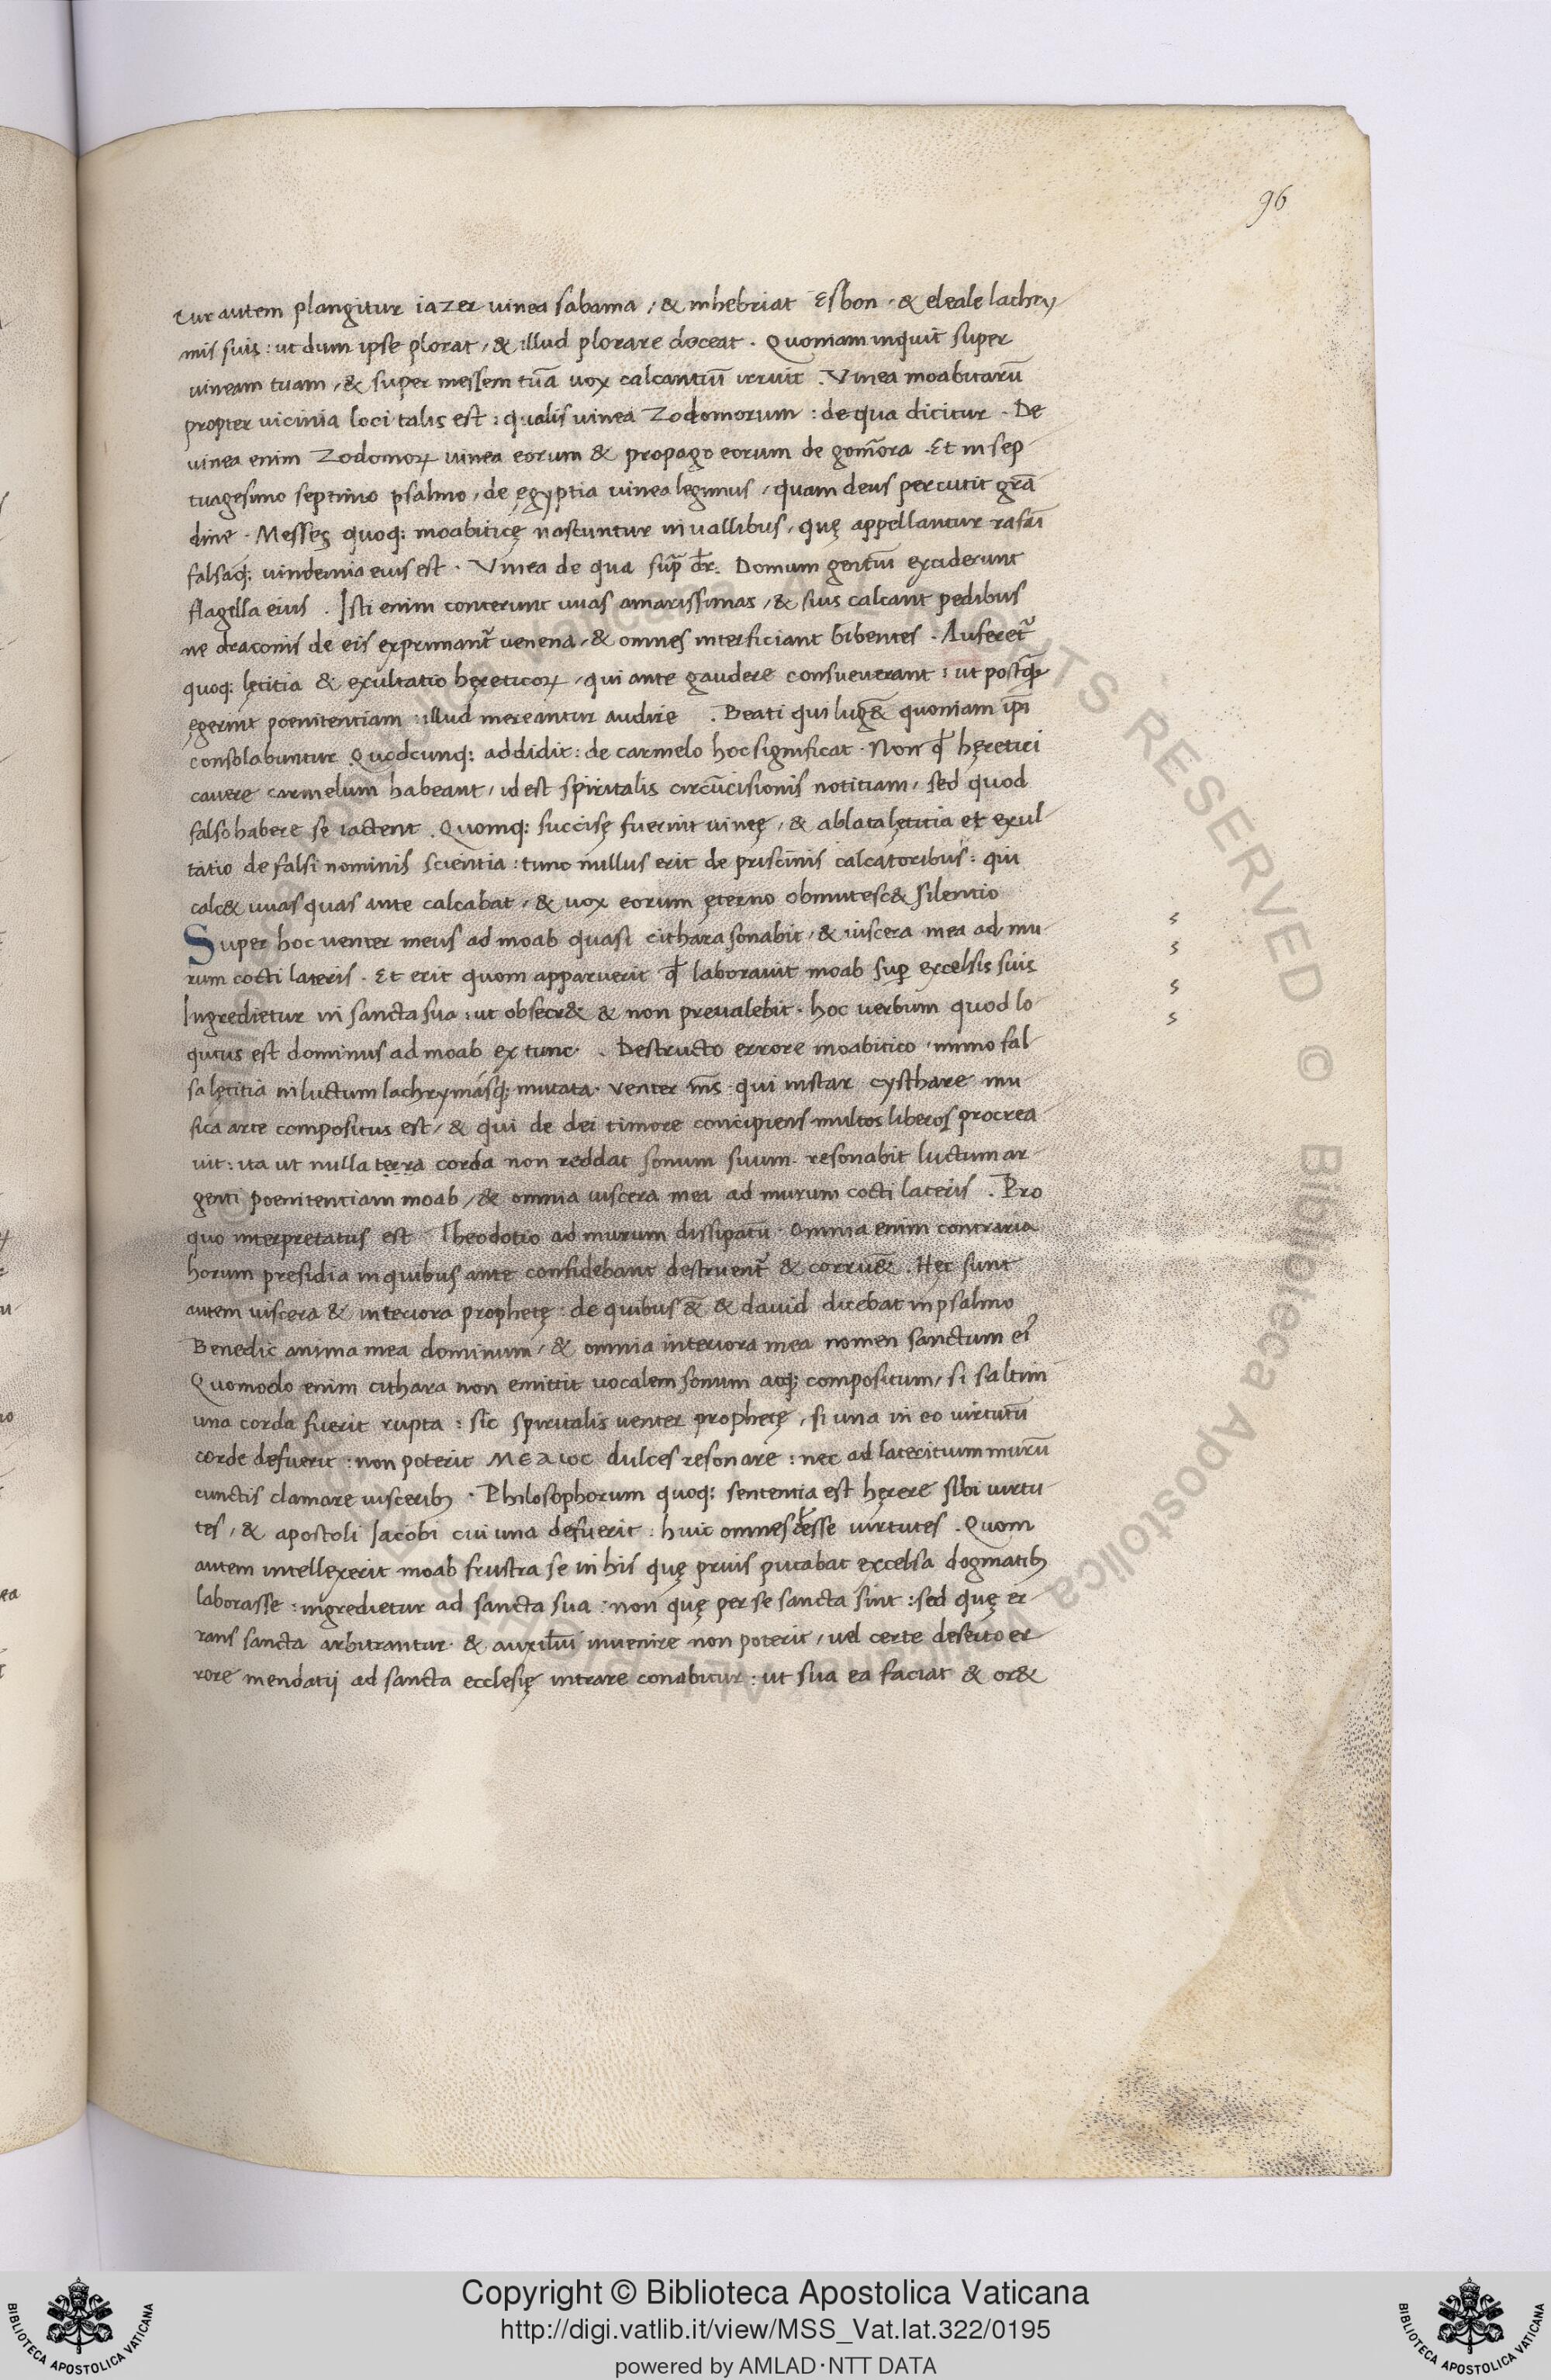 96
tur autem plangitur iazer uinea sabama, & inhebriat Esbon, & eleale lachry
mis suis: ut dum ipse plorat, & illud plorare doceat. Quoniam inquit super
uineam tuam, & super messem tuā uox calcantiū irruit. Vinea moabitarū
propter vicinia loci talis est: qualis uinea Zodomorum: de qua dicitur. De
uinea enim Zodomoꝝ uinea eorum & propago eorum de gom̄ora. Et in sep
tuagesimo septimo psalmo, de ęgyptia uinea legimus, quam deus percutit grā
dine. Messes quoq; moabiticę nascuntur in uallibus, quę appellantur rafaī
falsaq; uindemia eius est. Vinea de qua sup̄ dr̄. Domum gentiū exciderunt
flagella eius. Isti enim conterunt uuas amarissimas, & suis calcant pedibus
ne draconis de eis exprimant᷑ venena, & omnes interficiant bibentes. Auferet᷑
quoq; lętitia & exultatio hęreticoꝝ, qui ante gaudere consueuerant: ut postq̄
egerint poenitentiam: illud mereantur audire. Beati qui lug& quoniam ip̄i
consolabuntur Quodcunq; addidit: de carmelo hoc significat. Non qđ hęretici
cauere carmelum habeant, id est spiritalis circūcisionis notitiam, sed quod
falso habere se iactent. Quomq; succisę fuerint uineę, & ablata lętitia et exul
tatio de falsi nominis scientia: tunc nullus erit de priscinis calcatoribus: qui
calc& uuas quas ante calcabat, & uox eorum ęterno obmutesc& silentio
Super hoc uenter meus ad moab quasi cithara sonabit, & uiscera mea ad mu s
rum cocti lateris. Et erit quom apparuerit qđ laborauit moab suꝑ excelsis suis s
Ingredietur in sancta sua: ut obsecr& & non preualebit. hoc uerbum quod lo s
qutus est dominus ad moab ex tunc. Destructo errore moabitico, immo fal s
sa lętitia in luctum lachrymasq; mutata. venter m̄s qui instar cythare mu
sica arte compositus est, & qui de dei timore concipiens multos liberos procrea
uit: ita ut nulla terra corda non reddat sonum suum. resonabit luctum ar
genti poenitentiam moab, & omnia uiscera mea ad murum cocti lateris. Pro
quo interpretatus est Theodotio ad murum dissipatū. Omnia enim contraria
horum presidia in quibus ante confidebant destruent᷑ & corru&. Hęc sunt
autem uiscera & interiora prophetę: de quibus & & dauid dicebat in psalmo
Benedic anima mea dominum, & omnia interiora mea nomen sanctum ei᷑
Quomodo enim cithara non emittit uocalem sonum atq; compositum, si saltim
una corda fuerit rupta: sic spiritalis uenter prophetę, si una in eo uirtutū
corde defuerit: non poterit ΜΕΛωC dulces resonare: nec ad latericium murū
cunctis clamare uisceribꝫ. Philosophorum quoq; sententia est hęrere sibi uirtu
tes, & apostoli Iacobi cui una defuerit: huic omnes deesse uirtutes. Quom
autem intellexerit moab frustra se in his quę prius putabat excelsa dogmatibꝫ
laborasse: ingredietur ad sancta sua: non quę per se sancta sint: sed quę er
rans sancta arbitrantur. & auxiliū inuenire non poterit, uel certe deserto er
rore mendatij ad sancta ecclesię intrare conabitur: ut sua ea faciat & or&
Copyright © Biblioteca Apostolica Vaticana
http://digi.vatlib.it/view/MSS_Vat.lat.322/0195
powered by AMLAD·NTT DATA